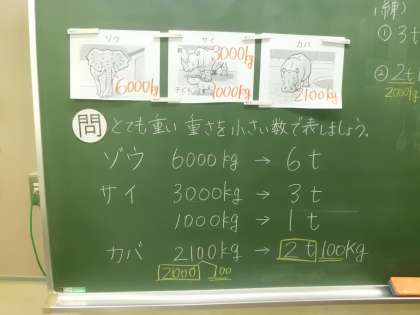 ゾウ
6000kg
サイ
3000kg
子ども
1000kg
カバ
2100kg
問 とても重い重さを小さい数で表しましょう。
ゾウ 6000kg → 6t
サイ 3000kg → 3t
1000kg → 1t
カバ 2100kg → 2t100kg
2000 100
(練)
① 3t
② 2t
2000kg